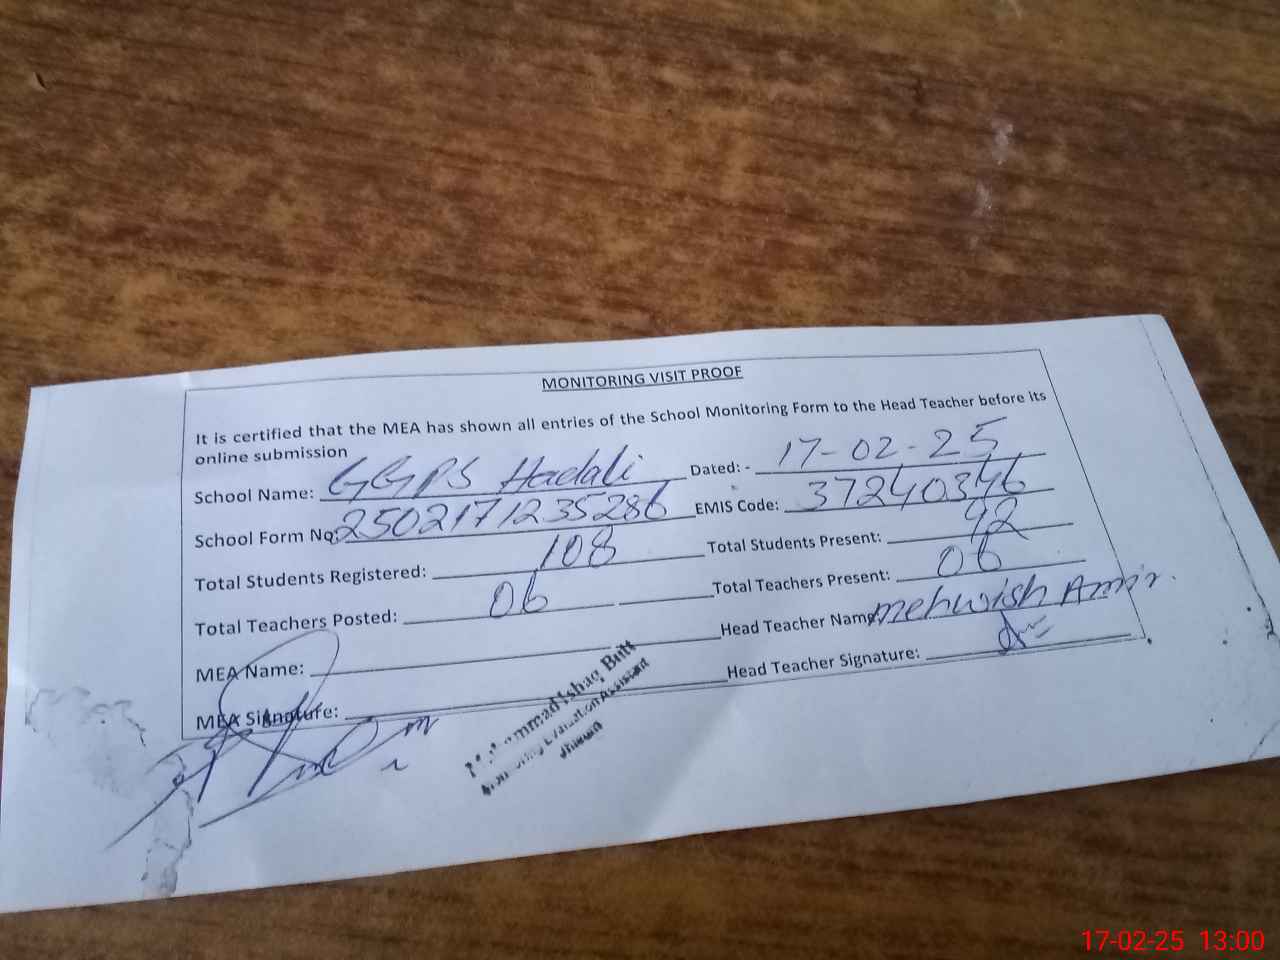 MONITORING VISIT PROOF
It is certified that the MEA has shown all entries of the School Monitoring Form to the Head Teacher before its
online submission
School Name: GGPS Hadali Dated: - 17-02-25
School Form No: 2502171235286 EMIS Code: 37240346
Total Students Registered: 108 Total Students Present: 92
Total Teachers Posted: 06 Total Teachers Present: 06
MEA Name: Head Teacher Name Mehwish Amir.
MEA Signature: Head Teacher Signature:
Muhammad Ishaq Butt
Monitoring Evaluation Assistant
Jhelum
17-02-25 13:00